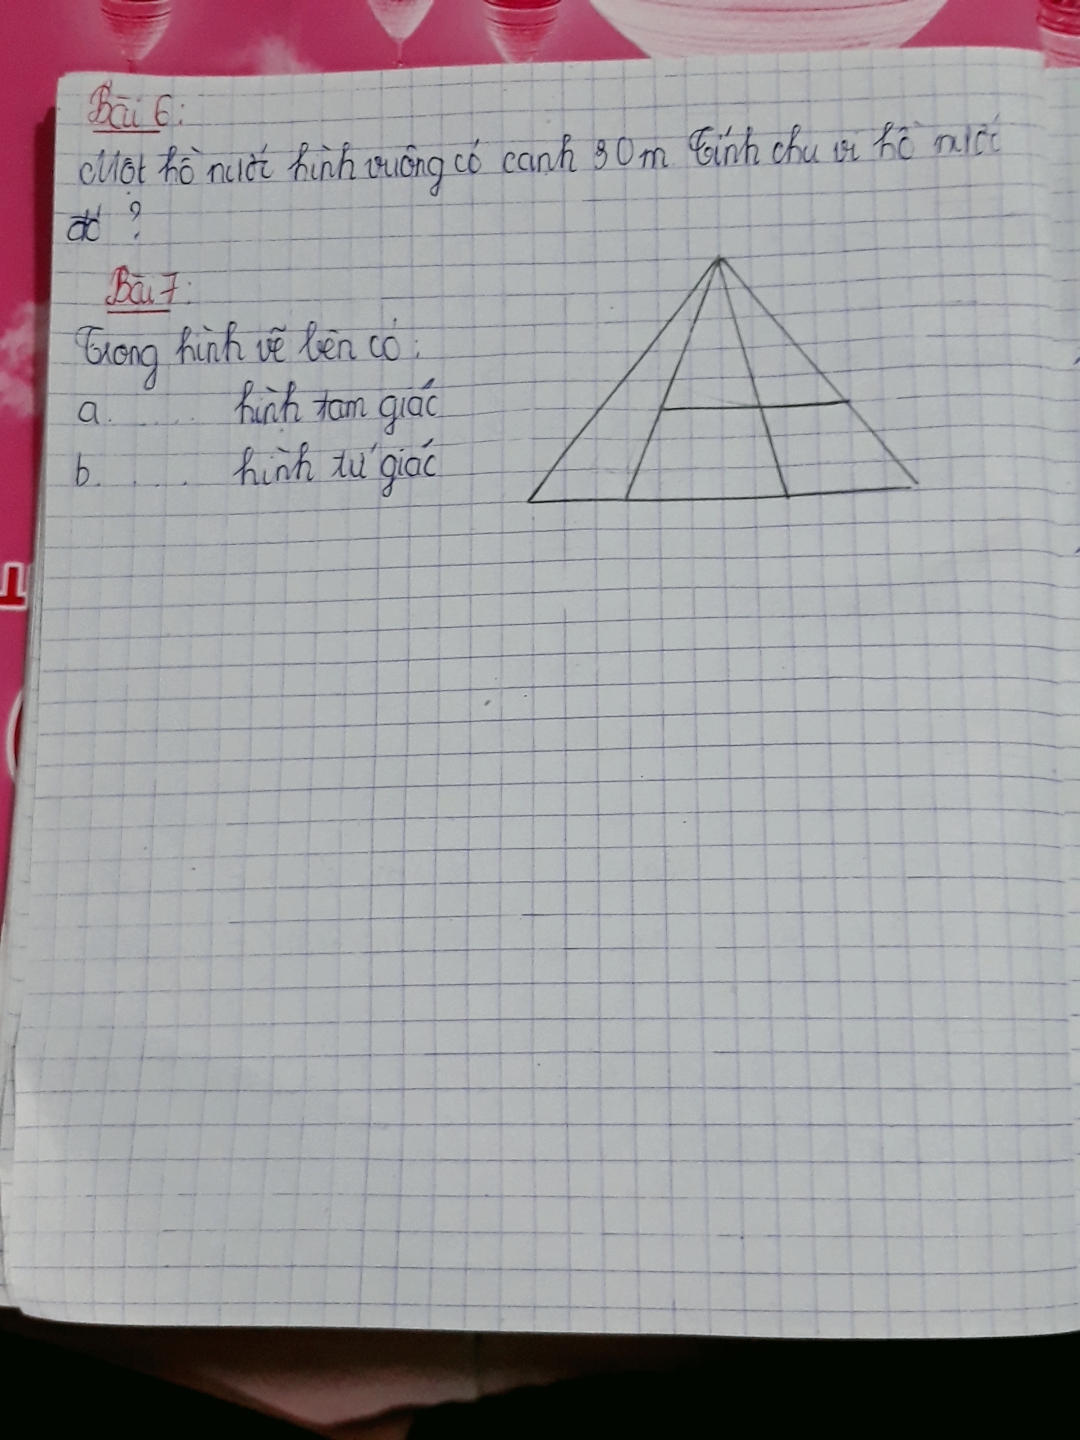 Bài 6:
Một hồ nước hình vuông có cạnh 30m Tính chu vi hồ nước
đó ?
Bài 7:
Trong hình vẽ bên có:
a. .... hình tam giác
b. .... hình tứ giác
T